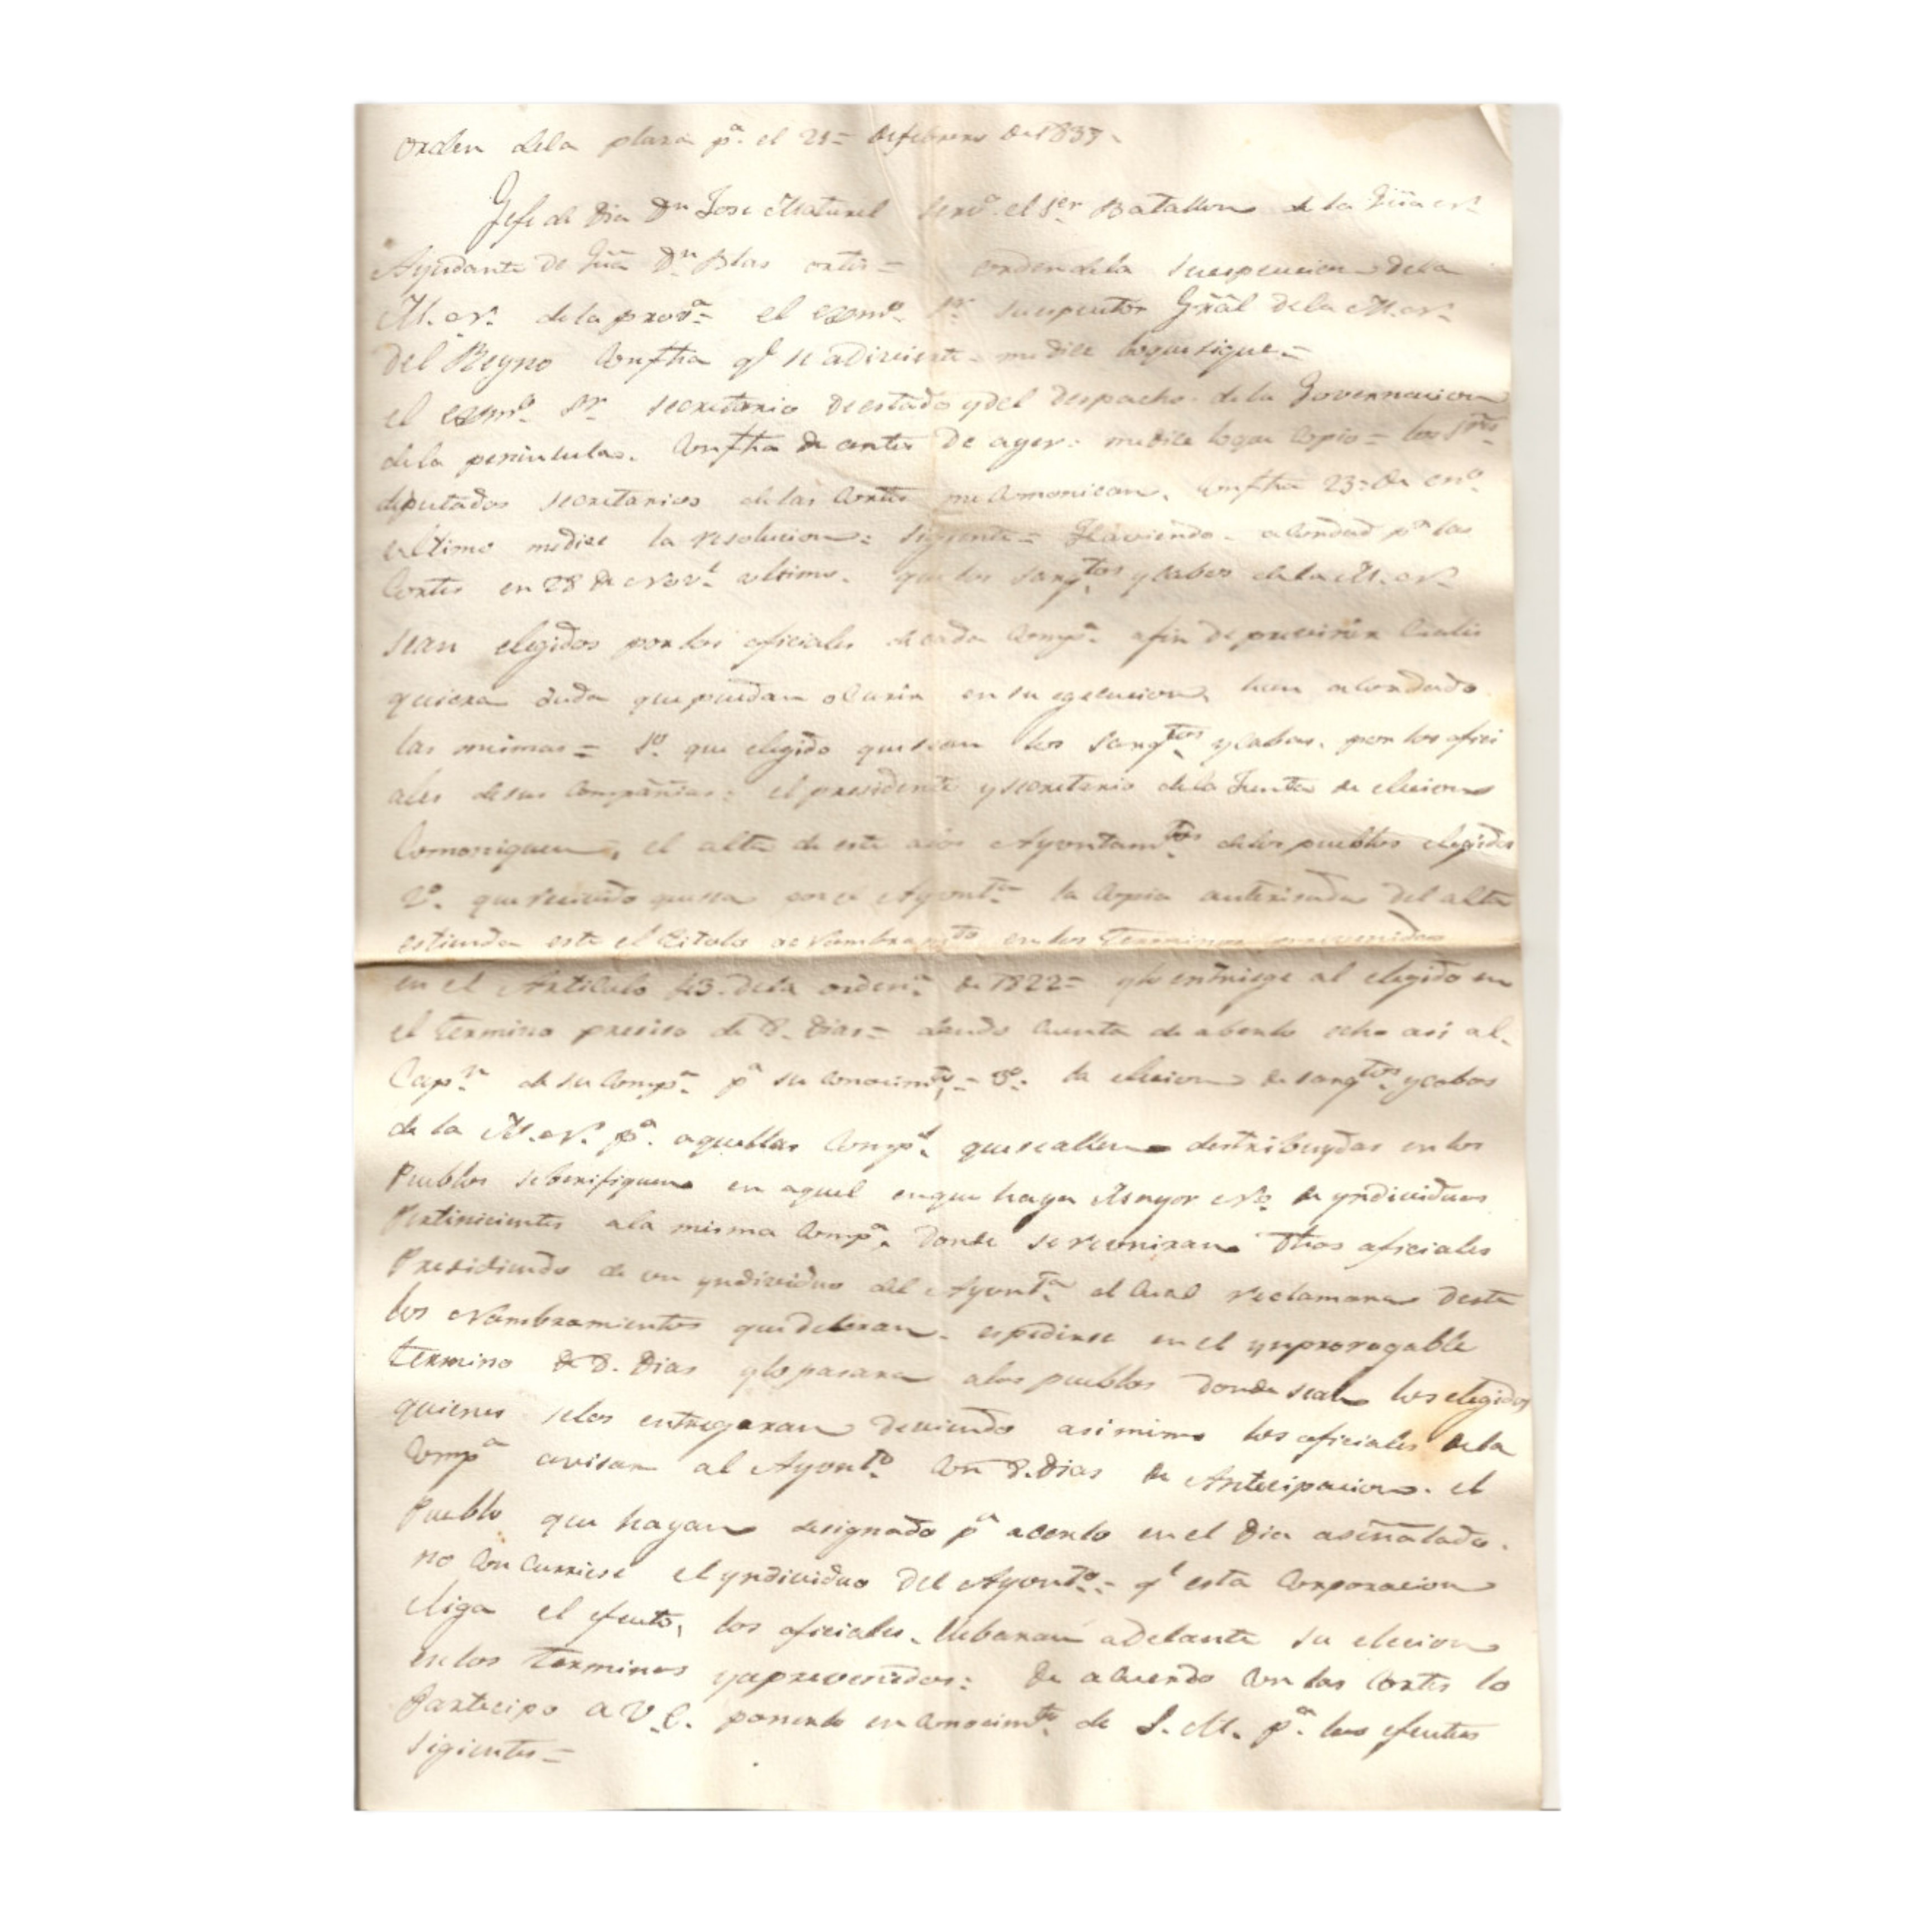 Orden dela plaza pª. el 21= de febrero de 1837.
Jefe de Dia Dn Jose Maturel servº. el 1er Batallon de la
Ayudante de Dn Blas ortis = orden dela dela
M. N. de la provª= el exmº. Sr. Gral dela M. N.
del Reyno Con fha qe me dice loque sigue=
el exmº Sr. secretario de estado ydel despacho de la Governacion
dela peninsula. Con fha de antes de ayer: medice loque Copio = los Sres
diputados secretarios delas Cortes me Comonican. Con fha 23= de enº
ultimo medice la resolucion: sigiente= Haviendo. acordad pr las
Cortes en 28 de Nove. ultimo. que los sargtos y cabos de la M. N.
sean elegidos por los oficiales de cada Compª. afin de
quiera duda que puedan ocurir en su egecucion han acordado
las mimas= 1º. que elegido que sean los sargtos ycabos. por los ofici
ales desus Compañias: el presidente ysecretario dela Junta de elecion
Comoniquen, el alta de este alos Ayuntamtos delos pueblos elegidos
2º. que recivido quesea por el Ayuntº. la Copia autorisada del alta
estienda este el titolo de Nombramto en los Terminos prevenidos
en el Articulo 43. dela ordenª. de 1822= ylo entriege al elegido en
el termino preciso de 8. Dias= dando Cuenta de aberlo echo asi al.
Capn. de su Compª. pª su conocimto.= 3º. la elecion de sargtos. ycabos
de la M. N. pª. aquellas Comps. quese allen destribuydas en los
Pueblos seberifiquen en aquel enque haya Mayor Nº de yndividuos
Pertinicientes ala misma Compª. donde sereuniran dhos oficiales
Presidiendo de un yndividuo del Ayuntº. el Cual reclamara deste
los Nombramientos que deberan espedirse en el ynprorogable
termino de 8. Dias ylo pasara alos pueblos donde sean los elegidos
quienes selos entregaran deviendo asimimo los oficiales dela
Compª avisar al Ayuntº. con 8. Dias de Antecipacion. el
Pueblo que hayan designado pª acerlo en el Dia asenalado.
no Con curriese el yndividuo del Ayuntº.= qe esta Corporacion
eliga el efeuto, los oficiales. llebaran adelante su elecion
en los terminos yaprevenidos: de acuerdo Con las Cortes lo
Participo a V. E. ponerlo en Conocimto. de S. M. pª. los efeutos
sigientes=